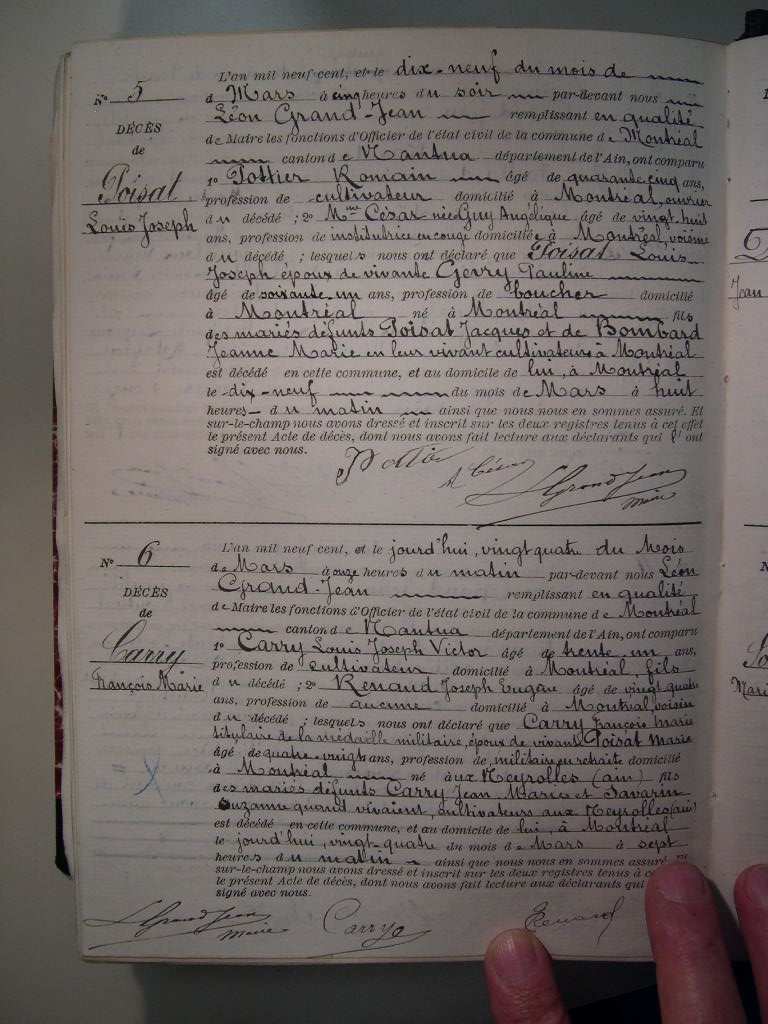 N° 5
DÉCÈS
de
Poisat
Louis Joseph
L'an mil neuf cent, et le dix-neuf du mois de
d Mars à cinq heures du soir par-devant nous
Léon Grand-Jean remplissant en qualité
de Maire les fonctions d'Officier de l'état civil de la commune de Montréal
canton de Nantua département de l'Ain, ont comparu
1° Pottier Romain âgé de quarante cinq ans,
profession de cultivateur domicilié à Montréal, ouvrier
du décédé ; 2° Mme César née Guy Angélique âgé de vingt huit
ans, profession de institutrice en congé domiciliée à Montréal, voisine
du décédé ; lesquels nous ont déclaré que Poisat Louis
Joseph époux de vivante Gerry Pauline
âgé de soixante-un ans, profession de boucher domicilié
à Montréal né à Montréal fils
des mariés défunts Poisat Jacques et de Bombard
Jeanne Marie en leur vivant cultivateurs à Montréal
est décédé en cette commune, et au domicile de lui, à Montréal
le dix-neuf du mois de Mars à huit
heures du matin ainsi que nous nous en sommes assuré. Et
sur-le-champ nous avons dressé et inscrit sur les deux registres tenus à cet effet
le présent Acte de décès, dont nous avons fait lecture aux déclarants qui l'ont
signé avec nous.
A César
L Grand Jean
maire
N° 6
DÉCÈS
de
Carry
François Marie
L'an mil neuf cent, et le jourd'hui, vingt quatre du Mois
de Mars à onze heures du matin par-devant nous Léon
Grand-Jean remplissant en qualité
de Maire les fonctions d'Officier de l'état civil de la commune de Montréal
canton de Nantua département de l'Ain, ont comparu
1° Carry Louis Joseph Victor âgé de trente-un ans,
profession de cultivateur domicilié à Montréal, fils
du décédé ; 2° Renaud Joseph Eugène âgé de vingt quatre
ans, profession de aucune domicilié à Montréal, voisin
du décédé ; lesquels nous ont déclaré que Carry françois marie
titulaire de la médaille militaire, époux de vivante Poisat Marie
âgé de quatre-vingt ans, profession de militaire en retraite domicilié
à Montréal né aux Neyrolles (ain) fils
des mariés défunts Carry Jean Marie et Tavarin
Suzanne quand vivaient, cultivateurs aux Neyrolles (ain)
est décédé en cette commune, et au domicile de lui, à Montréal
le jourd'hui, vingt-quatre du mois de Mars à sept
heures du matin ainsi que nous nous en sommes assuré.
sur-le-champ nous avons dressé et inscrit sur les deux registres tenus à
le présent Acte de décès, dont nous avons fait lecture aux déclarants qui
signé avec nous.
L Grand Jean
maire
Carry
Renaud
Jean